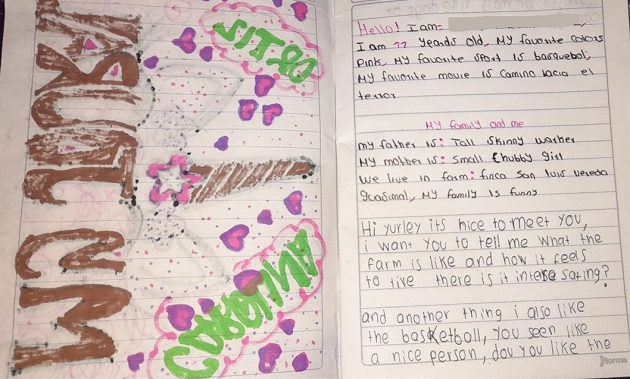 ORTIS
CAROLINA
Hello! I am=
I am 11 years old, My favorite colors
Pink, My favorite sport is basquebol,
My favorite movie is camino hacia el
terror
My family and me
my father is: Tall skinny
My mother is: Small Chubby girl
We live in farm: finca San luis vereda
My family is funny
Hi yurley its nice to meet you,
i want you to tell me what the
farm is like and how it feels
to live there is it interesating?
and another thing i also like
the basketball, you seen like
a nice person, dou you like the
norma